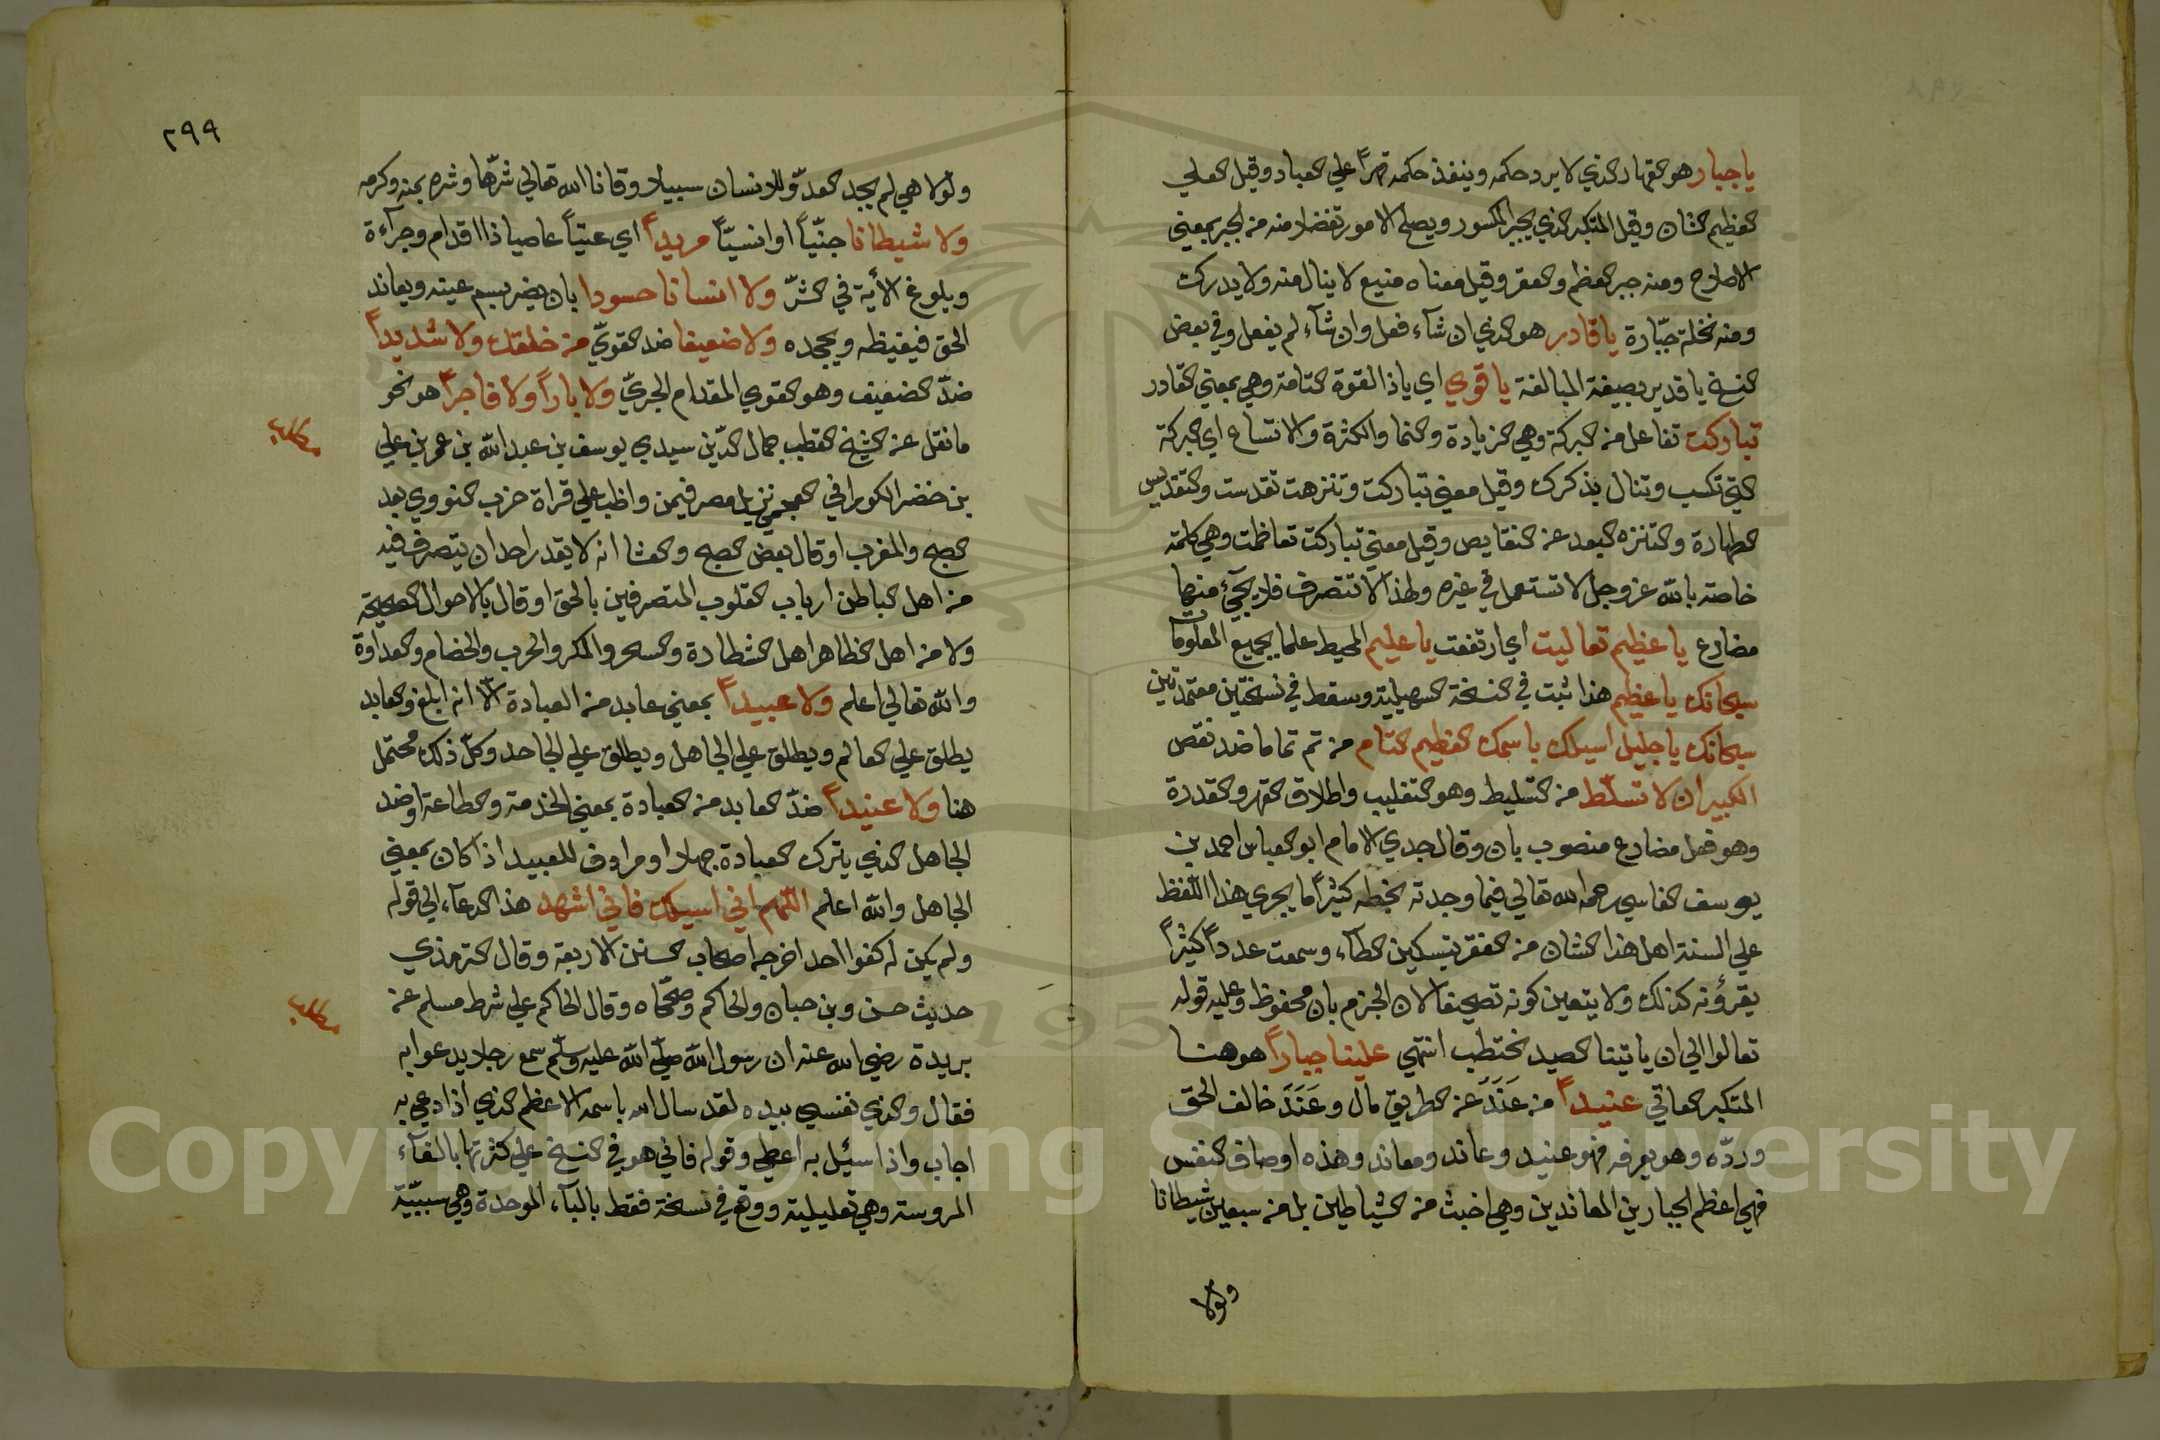 يا جبار هو القهار الذي لا يرد حكمه وينفذ حكمه قهراً علي العباد وقيل العلي
العظيم الشان وقيل المتكبر الذي يجبر المكسور ويصلح الامور تفضلا منه من الجبر بمعني
الاصلاح ومنه جبر العظم والفقر وقيل معناه منيع لا ينال منه ولا يدركك
ومنه نخلة جبّارة يا قادر هو الذي ان شآء فعل وان شآء لم يفعل وفي بعض
النسخ يا قدير بصيغة المبالغة يا قوي اي يا ذا القوة التامة وهي بمعني القادر
تباركت تفاعل من البركة وهي الزيادة والنما والكثرة والاتساع اي البركة
التي تكسب وتنال بذكرك وقيل معني تباركت وتنزهت تقدست والتقديس
الطهارة والتنزه البعد عن النقايص وقيل معني تباركت تعاظمت وهي كلمة
خاصة بالله عز وجل لا تستعمل في غيره ولهذا لا تتصرف فلا يجئ منها
مضارع يا عظيم تعاليت اي ارتفعت يا عليم المحيط علما بجميع المعلومات
سبحانك يا عظيم هذا ثبت في النسخة السهيلية وسقط في نسختين معتمدتين
سبحانك يا جليل اسيلك باسمك العظيم التام من تم تماما ضد نقص
الكبير ان لا تسلّط من التسليط وهو التغليب واطلاق القهر والقدرة
وهو فعل مضارع منصوب بان وقال جدي الامام ابو العباس احمد بن
يوسف الفاسي رحمه الله تعالي فيما وجدته بخطه كثيراً ما يجري هذا اللفظ
علي السنة اهل هذا الشان من الفقر بتسكين الطآء وسمعت عدداً كثيراً
يقرؤنه كذلك ولا يتعين كونه تصحيفا لان الجزم بان محفوظ وعليه قوله
تعالوا الي ان ياتينا الصيد نحتطب انتهي علينا جباراً هو هنا
المتكبر العاتي عنيداً من عَنَدَ عن الطريق مال وعَنَدَ خالف الحق
وردّه وهو يعرفه فهو عنيد وعاند ومعاند وهذه اوصاف النفس
فهي اعظم الجبارين المعاندين وهي اخبث من الشياطين بل من سبعين شيطانا
ولولا
٢٩٩
ولولا هي لم يجد العدوّ للانسان سبيلا وقانا الله تعالي شرّها وشره بمنه وكرمه
ولا شيطانا جنّياً او انسيّاً مريداً اي عتيّاً عاصيا ذا اقدام وجرآءة
وبلوغ الأية في الشرّ ولا انسانا حسودا بان يضر بسم عينه ويعاند
الحق فيغيظه ويجحده ولا ضعيفا ضد القويّ من خلقك ولا شديداً
ضدّ الضعيف وهو القوي المقدام الجريّ ولا باراً ولا فاجراً هو نحو
ما نقل عن الشيخ القطب جمال الدّين سيدي يوسف بن عبد الله بن عمر بن علي
بن خضر الكوراني العجمي نزيل مصر فيمن واظب علي قراة حزب النووي بعد
الصبح والمغرب او قال بعض الصبح والعشا انه لا يقدر احد ان يتصرف فيه
من اهل الباطن ارباب القلوب المتصرفين بالحق او قال بالاحوال الصحيحة
ولا من اهل الظاهر اهل الشطارة والسحر والمكر والحرب والخصام والعداوة
والله تعالي اعلم ولا عبيداً بمعني عابد من العبادة الّا انه ابلغ والعابد
يطلق علي العالم ويطلق علي الجاهل ويطلق علي الجاحد وكلّ ذلك محتمل
هنا ولا عنيداً ضدّ العابد من العبادة بمعني الخدمة والطاعة او ضد
الجاهل الذي يترك العبادة جهلا او مرادف للعبيد اذا كان بمعني
الجاهل والله اعلم اللّهم اني اسيلك فاني اشهد هذا الدعآء الي قوله
ولم يكن له كفوا احد اخرجه اصحاب السنن الاربعة وقال الترمذي
حديث حسن وبن حبان والحاكم وصحّحاه وقال الحاكم علي شرط مسلم عن
بريدة رضي الله عنه ان رسول الله صلّي الله عليه وسلّم سمع رجلا يدعوا به
فقال والذي نفسي بيده لقد سال الله باسمه الاعظم الذي اذا دعي به
اجاب واذا سئل به اعطي وقوله فاني هو في النسخ علي كثرتها بالفآء
المروسة وهي تعليلية ووقع في نسخة فقط بالبآء الموحدة وهي سببيّة